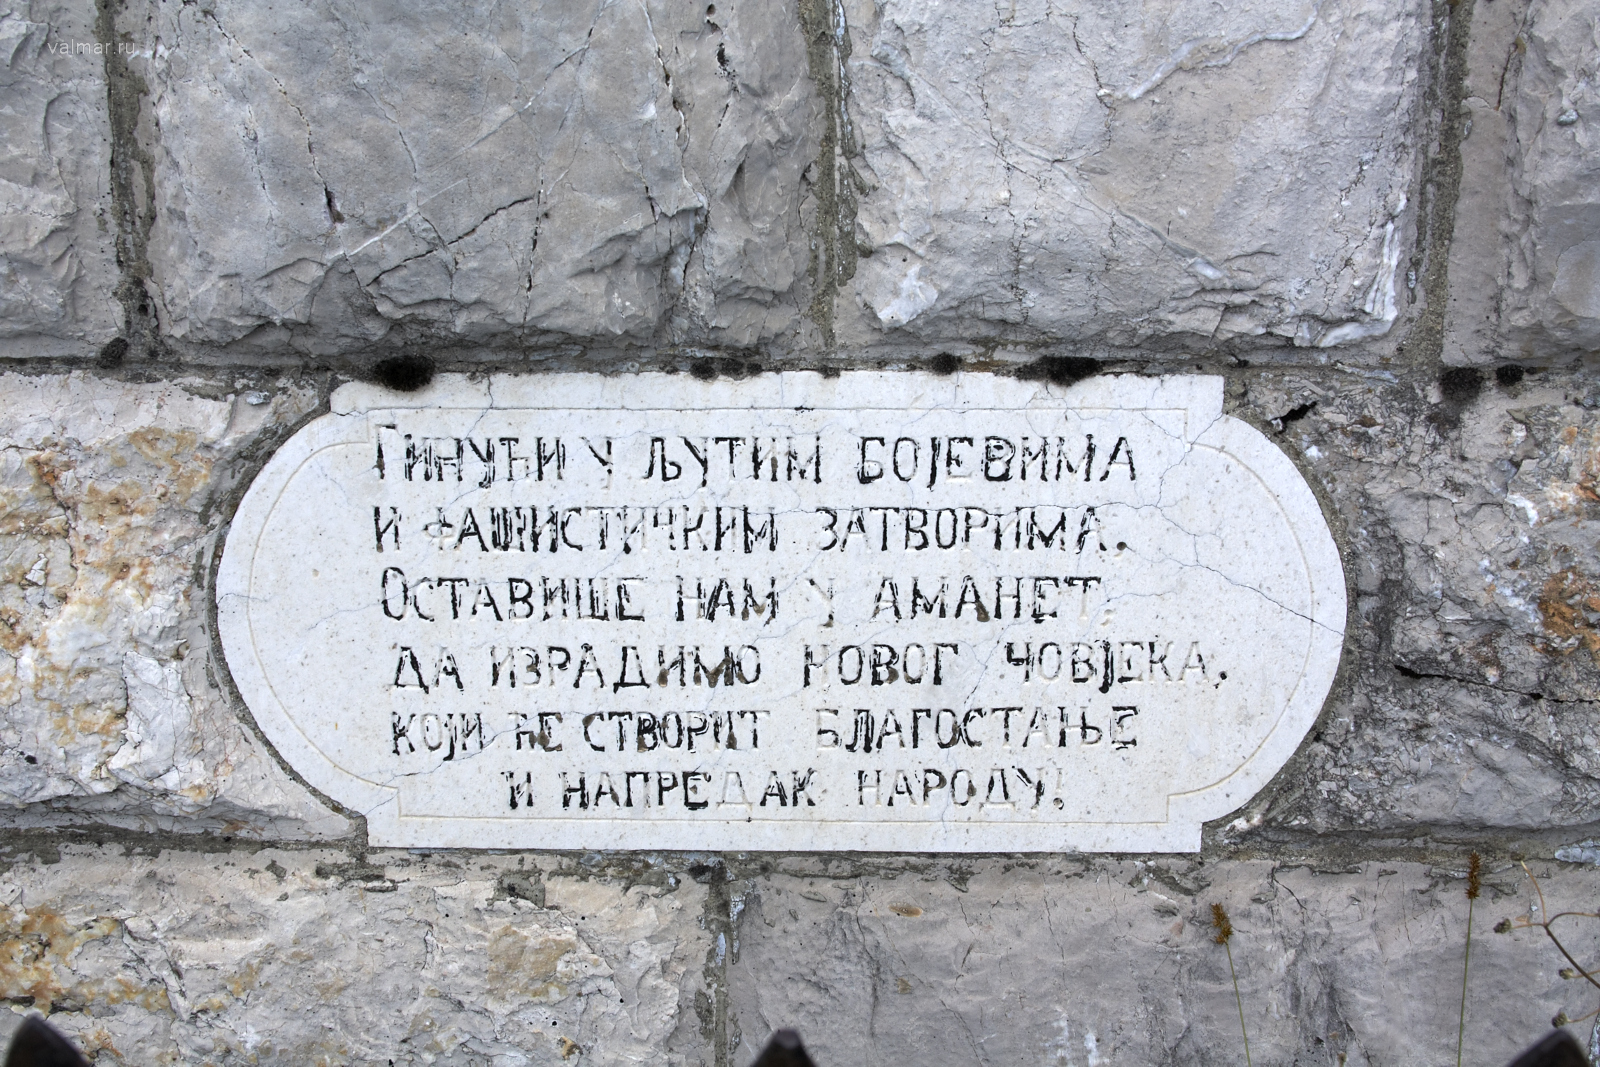 valmar.ru
Гинући у љутим бојевима
и фашистичким затворима.
Оставише нам у аманет,
да израдимо новог човјека,
који ће створит благостање
и напредак народу!